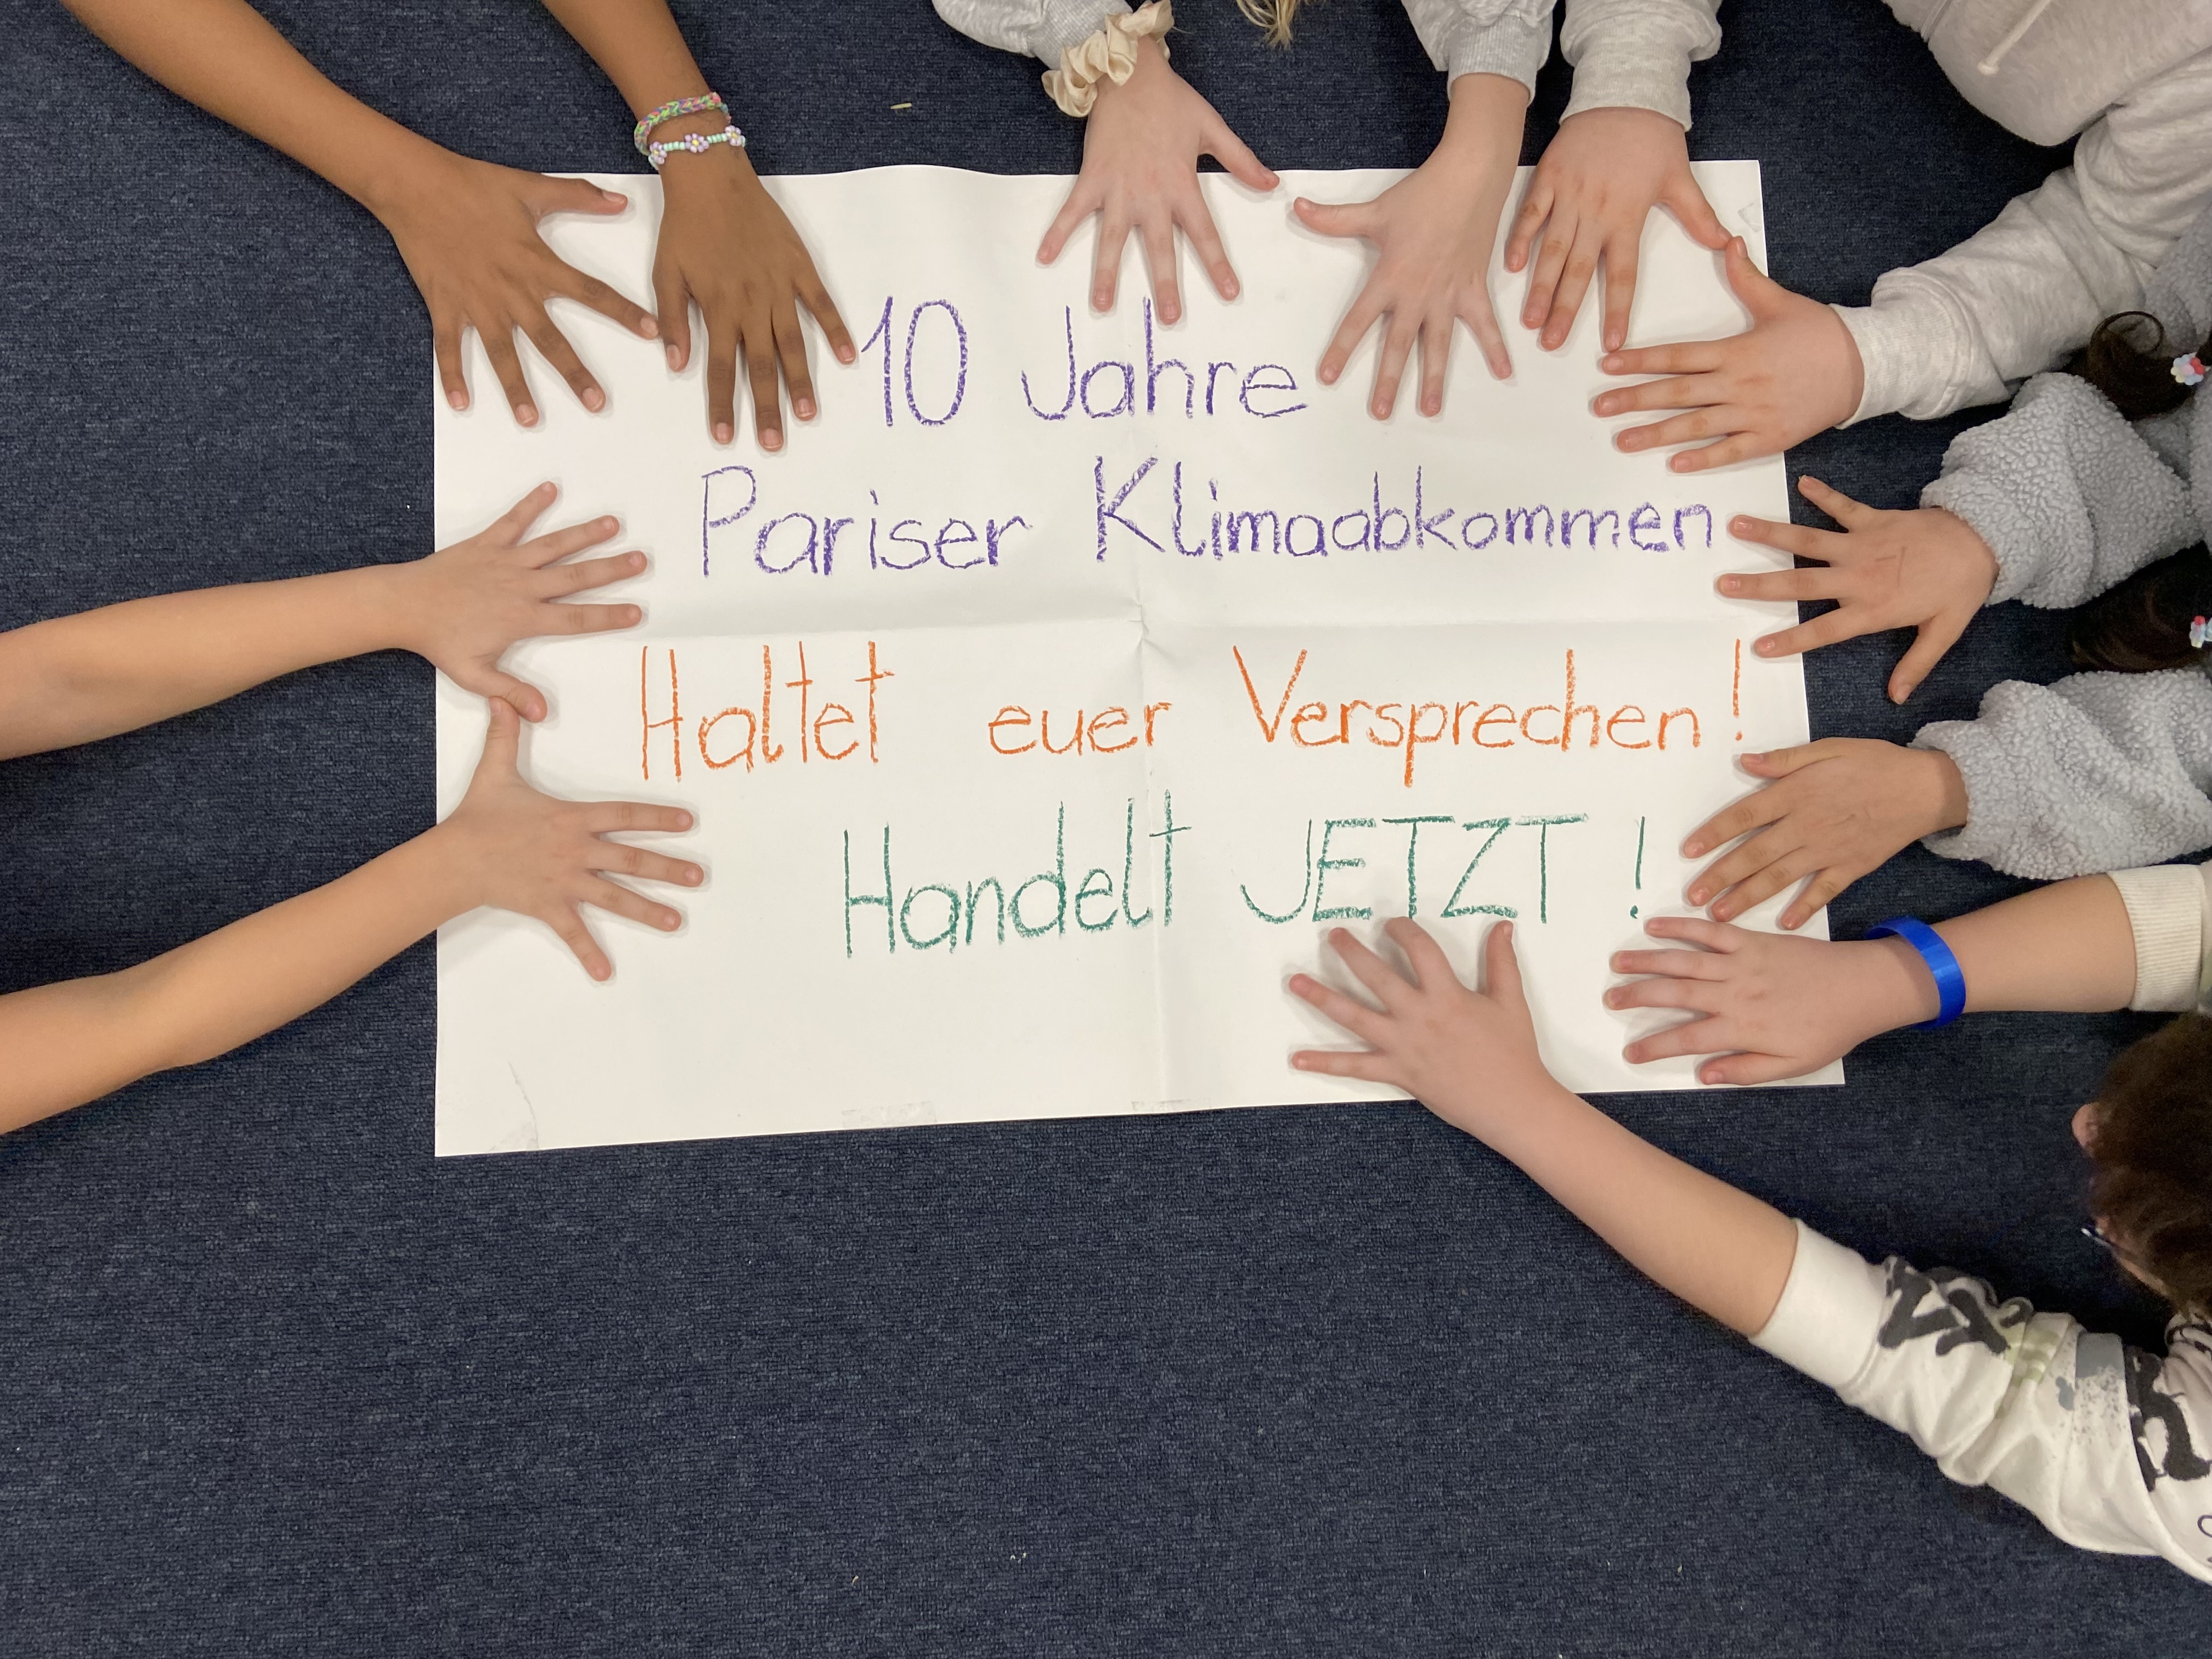 10 Jahre
Pariser Klimaabkommen
Haltet euer Versprechen!
Handelt JETZT!